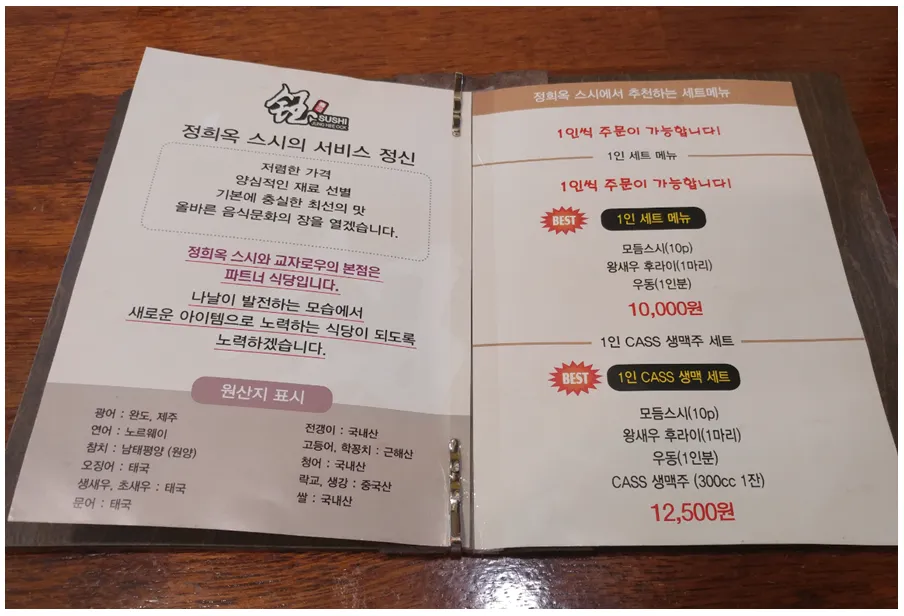 SUSHI
JUNG HEE OCK
정희옥 스시의 서비스 정신
저렴한 가격
양심적인 재료 선별
기본에 충실한 최선의 맛
올바른 음식문화의 장을 열겠습니다.
정희옥 스시와 교자로우의 본점은
파트너 식당입니다.
나날이 발전하는 모습에서
새로운 아이템으로 노력하는 식당이 되도록
노력하겠습니다.
원산지 표시
광어 : 완도, 제주
연어 : 노르웨이
참치 : 남태평양 (원양)
오징어 : 태국
생새우, 초새우 : 태국
문어 : 태국
전갱이 : 국내산
고등어, 학꽁치 : 근해산
청어 : 국내산
락교, 생강 : 중국산
쌀 : 국내산
정희옥 스시에서 추천하는 세트메뉴
1인씩 주문이 가능합니다!
1인 세트 메뉴
1인씩 주문이 가능합니다!
BEST 1인 세트 메뉴
모듬스시(10p)
왕새우 후라이(1마리)
우동(1인분)
10,000원
1인 CASS 생맥주 세트
BEST 1인 CASS 생맥 세트
모듬스시(10p)
왕새우 후라이(1마리)
우동(1인분)
CASS 생맥주 (300cc 1잔)
12,500원